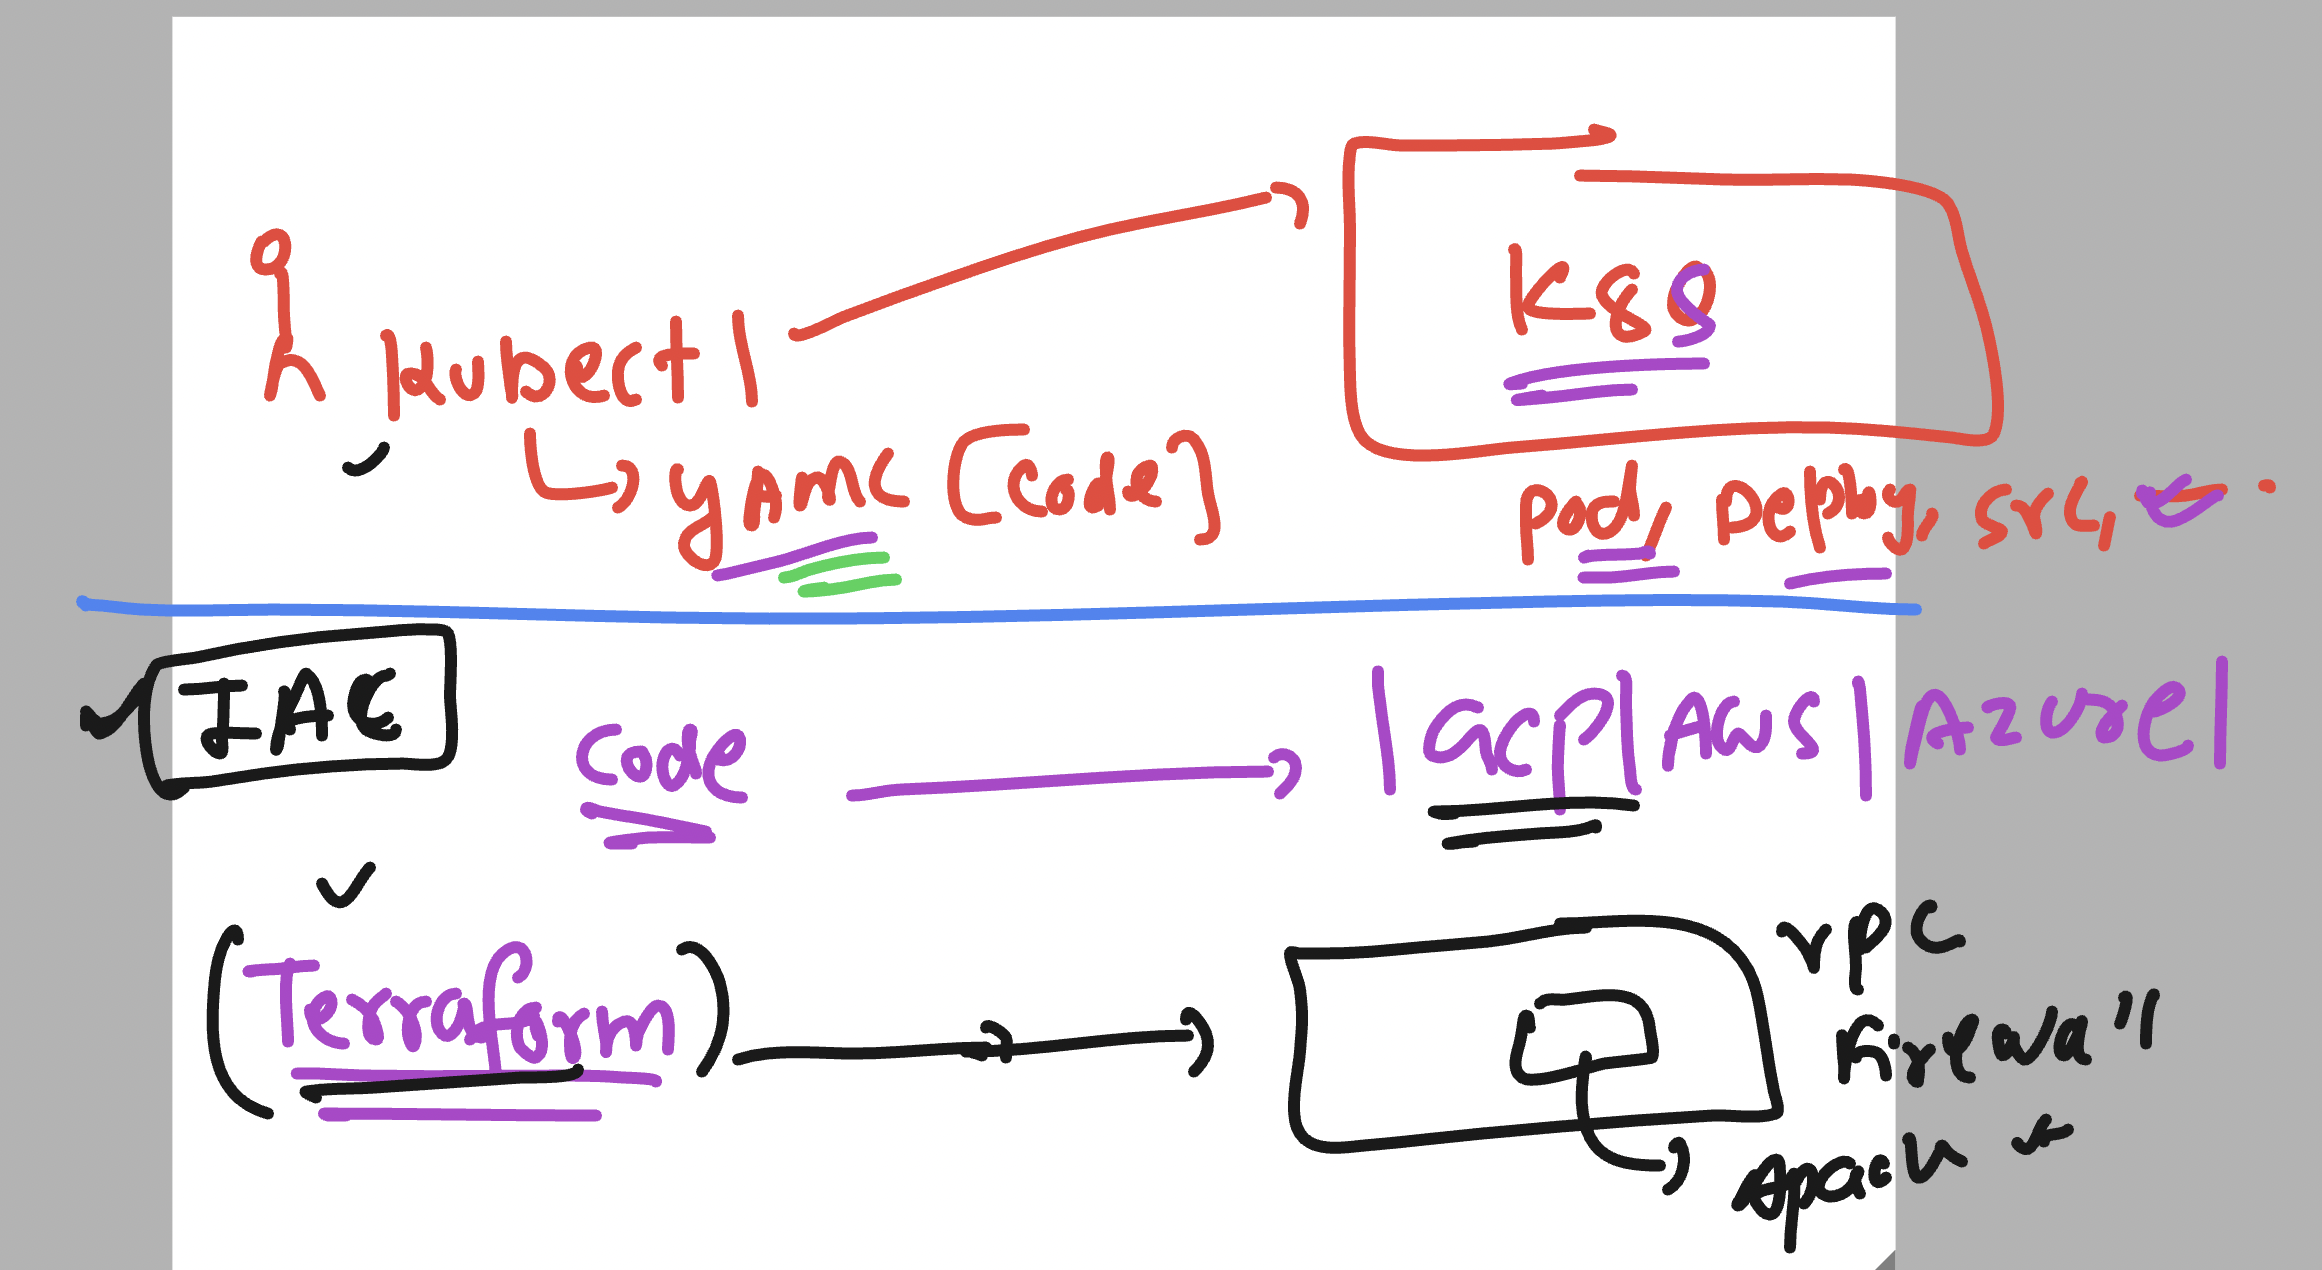 K8S
kubectl
YAML [code]
pod, Deploy, svc,
IAC
code
|GCP|AWS|Azure|
VPC
(Terraform)
Firewall
Apach